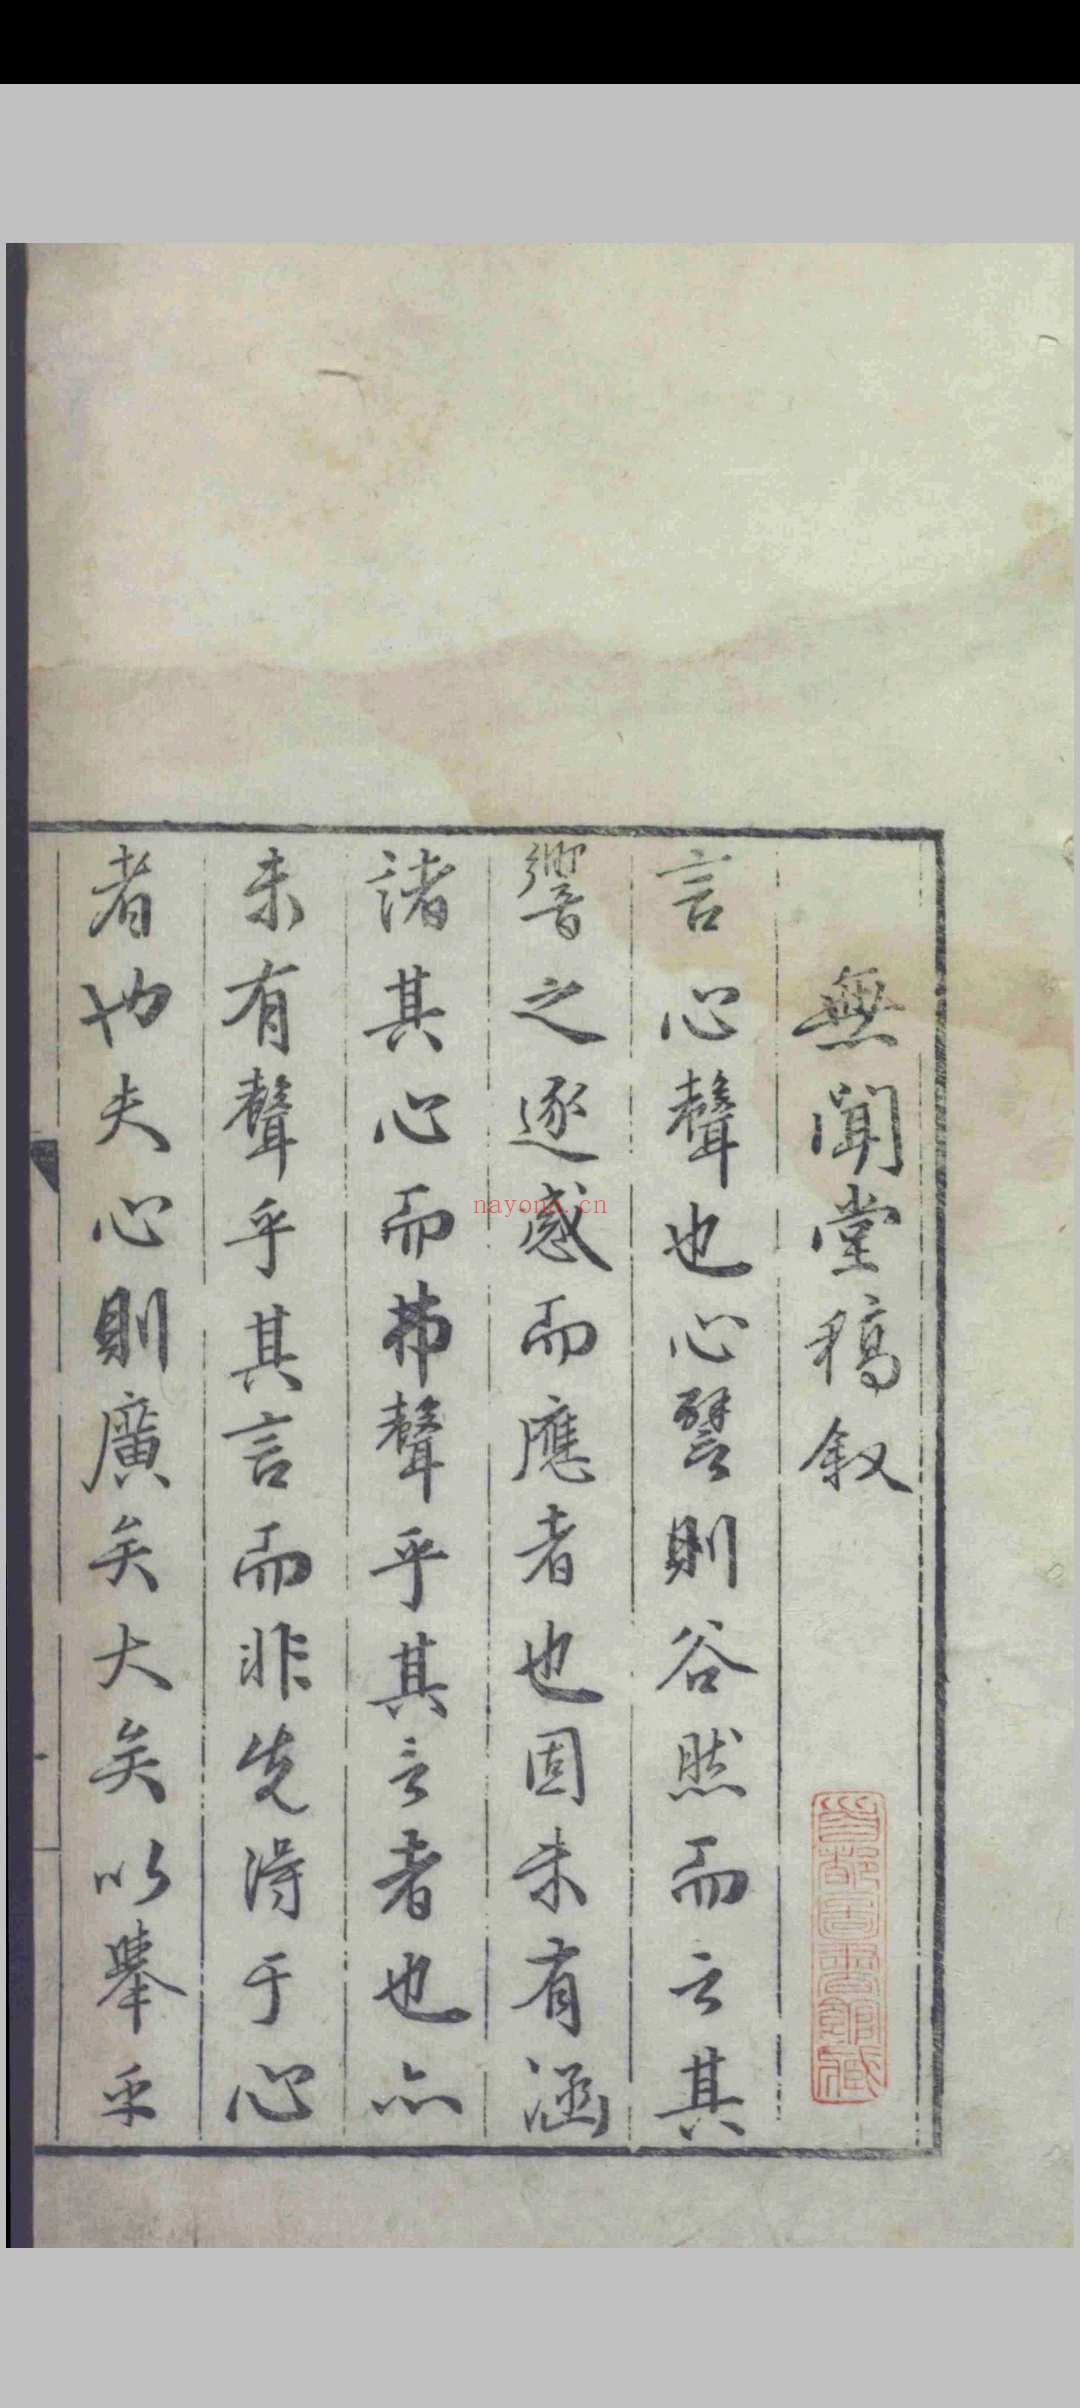 無聞堂稿叙
言心聲也心譬則谷然而言其
響之逐感而應者也固未有涵
諸其心而弗聲乎其言者也亦
未有聲乎其言而非先得于心
者也夫心則廣矣大矣以舉乎
首都圖書館藏
nayona.cn